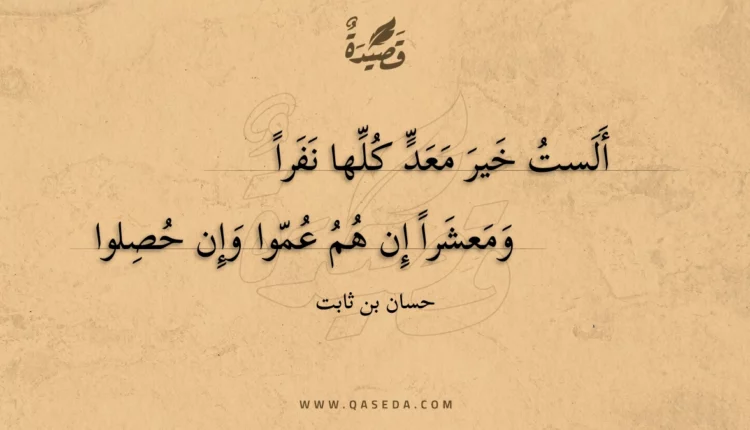 قَصِيْدَةٌ
أَلَستُ خَيرَ مَعَدٍّ كُلِّها نَفَراً
وَمَعشَراً إِن هُمُ عُمّوا وَإِن حُصِلوا
حسان بن ثابت
WWW.QASEDA.COM